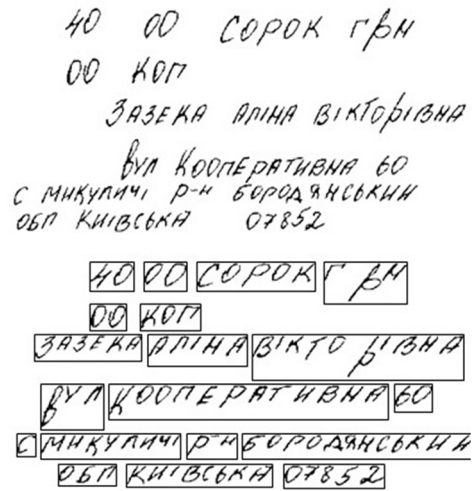 40 00 СОРОК ГРН
00 КОП
ЗАЗЕКА АЛІНА ВІКТОРІВНА
ВУЛ КООПЕРАТИВНА 60
С МИКУЛИЧІ Р-Н БОРОДЯНСЬКИЙ
ОБЛ КИЇВСЬКА 07852
40 00 СОРОК ГРН
00 КОП
ЗАЗЕКА АЛІНА ВІКТОРІВНА
ВУЛ КООПЕРАТИВНА 60
С МИКУЛИЧІ Р-Н БОРОДЯНСЬКИЙ
ОБЛ КИЇВСЬКА 07852